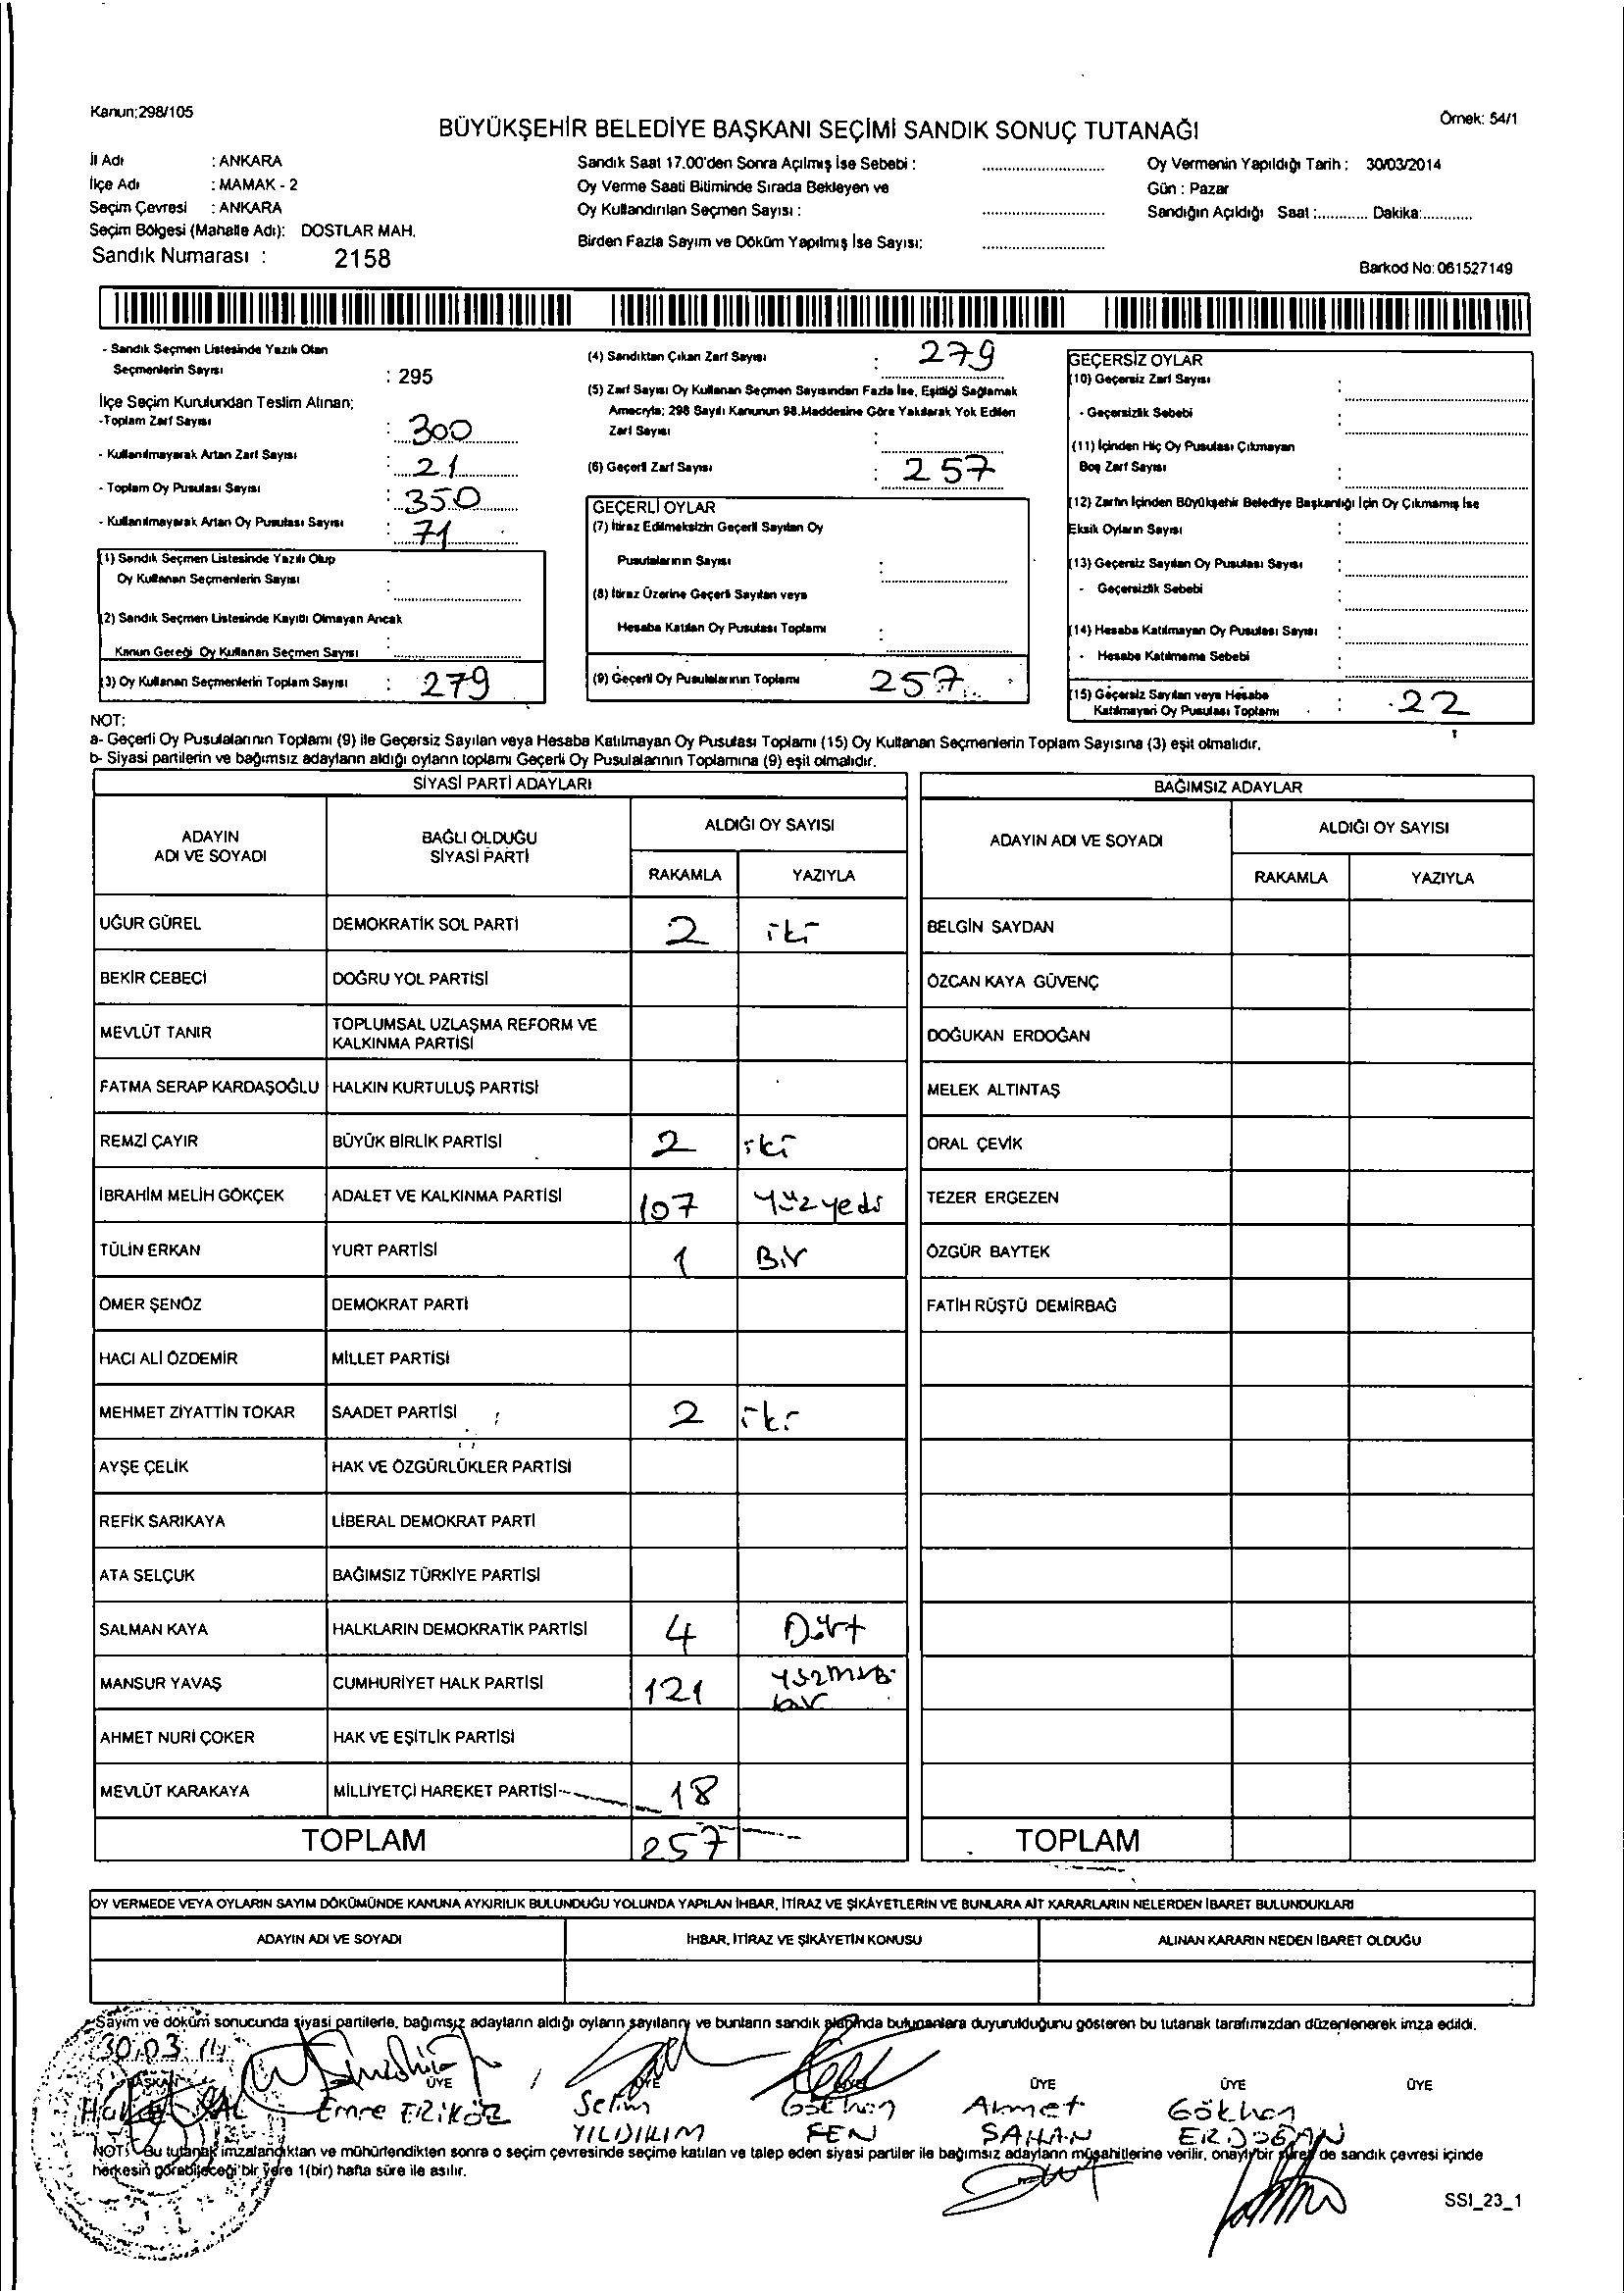 Kanun:298/105
Örnek: 54/1
BÜYÜKŞEHİR BELEDİYE BAŞKANI SEÇİMİ SANDIK SONUÇ TUTANAĞI
İl Adı : ANKARA
İlçe Adı : MAMAK - 2
Seçim Çevresi : ANKARA
Seçim Bölgesi (Mahalle Adı): DOSTLAR MAH.
Sandık Numarası : 2158
Sandık Saat 17.00'den Sonra Açılmış İse Sebebi :
Oy Verme Saati Bitiminde Sırada Bekleyen ve
Oy Kullandırılan Seçmen Sayısı :
Birden Fazla Sayım ve Döküm Yapılmış İse Sayısı:
Oy Vermenin Yapıldığı Tarih : 30/03/2014
Gün : Pazar
Sandığın Açıldığı Saat :............ Dakika:............
Barkod No: 061527149
- Sandık Seçmen Listesinde Yazılı Olan
Seçmenlerin Sayısı : 295
İlçe Seçim Kurulundan Teslim Alınan;
-Toplam Zarf Sayısı : 300
- Kullanılmayarak Artan Zarf Sayısı : 21
- Toplam Oy Pusulası Sayısı : 350
- Kullanılmayarak Artan Oy Pusulası Sayısı : 71
(1) Sandık Seçmen Listesinde Yazılı Olup
Oy Kullanan Seçmenlerin Sayısı :
(2) Sandık Seçmen Listesinde Kayıtlı Olmayan Ancak
Kanun Gereği Oy Kullanan Seçmen Sayısı :
(3) Oy Kullanan Seçmenlerin Toplam Sayısı : 279
(4) Sandıktan Çıkan Zarf Sayısı : 279
(5) Zarf Sayısı Oy Kullanan Seçmen Sayısından Fazla İse, Eşitliği Sağlamak
Amacıyla; 298 Sayılı Kanunun 98.Maddesine Göre Yakılarak Yok Edilen
Zarf Sayısı :
(6) Geçerli Zarf Sayısı : 257
GEÇERLİ OYLAR
(7) İtiraz Edilmeksizin Geçerli Sayılan Oy
Pusulalarının Sayısı :
(8) İtiraz Üzerine Geçerli Sayılan veya
Hesaba Katılan Oy Pusulası Toplamı :
(9) Geçerli Oy Pusulalarının Toplamı 257
GEÇERSİZ OYLAR
(10) Geçersiz Zarf Sayısı :
- Geçersizlik Sebebi :
(11) İçinden Hiç Oy Pusulası Çıkmayan
Boş Zarf Sayısı :
(12) Zarfın İçinden Büyükşehir Belediye Başkanlığı İçin Oy Çıkmamış İse
Eksik Oyların Sayısı :
(13) Geçersiz Sayılan Oy Pusulası Sayısı :
- Geçersizlik Sebebi :
(14) Hesaba Katılmayan Oy Pusulası Sayısı :
- Hesaba Katılmama Sebebi :
(15) Geçersiz Sayılan veya Hesaba
Katılmayan Oy Pusulası Toplamı : 22
NOT:
a- Geçerli Oy Pusulalarının Toplamı (9) ile Geçersiz Sayılan veya Hesaba Katılmayan Oy Pusulası Toplamı (15) Oy Kullanan Seçmenlerin Toplam Sayısına (3) eşit olmalıdır.
b- Siyasi partilerin ve bağımsız adayların aldığı oyların toplamı Geçerli Oy Pusulalarının Toplamına (9) eşit olmalıdır.
SİYASİ PARTİ ADAYLARI
ADAYIN ADI VE SOYADI BAĞLI OLDUĞU SİYASİ PARTİ ALDIĞI OY SAYISI
RAKAMLA YAZIYLA
UĞUR GÜREL DEMOKRATİK SOL PARTİ 2 iki
BEKİR CEBECİ DOĞRU YOL PARTİSİ
MEVLÜT TANIR TOPLUMSAL UZLAŞMA REFORM VE KALKINMA PARTİSİ
FATMA SERAP KARDAŞOĞLU HALKIN KURTULUŞ PARTİSİ
REMZİ ÇAYIR BÜYÜK BİRLİK PARTİSİ 2 iki
İBRAHİM MELİH GÖKÇEK ADALET VE KALKINMA PARTİSİ 107 Yüzyedi
TÜLİN ERKAN YURT PARTİSİ 1 Bir
ÖMER ŞENÖZ DEMOKRAT PARTİ
HACI ALİ ÖZDEMİR MİLLET PARTİSİ
MEHMET ZİYATTİN TOKAR SAADET PARTİSİ 2 iki
AYŞE ÇELİK HAK VE ÖZGÜRLÜKLER PARTİSİ
REFİK SARIKAYA LİBERAL DEMOKRAT PARTİ
ATA SELÇUK BAĞIMSIZ TÜRKİYE PARTİSİ
SALMAN KAYA HALKLARIN DEMOKRATİK PARTİSİ 4 Dört
MANSUR YAVAŞ CUMHURİYET HALK PARTİSİ 121
AHMET NURİ ÇOKER HAK VE EŞİTLİK PARTİSİ
MEVLÜT KARAKAYA MİLLİYETÇİ HAREKET PARTİSİ 18
TOPLAM 257
BAĞIMSIZ ADAYLAR
ADAYIN ADI VE SOYADI ALDIĞI OY SAYISI
RAKAMLA YAZIYLA
BELGİN SAYDAN
ÖZCAN KAYA GÜVENÇ
DOĞUKAN ERDOĞAN
MELEK ALTINTAŞ
ORAL ÇEVİK
TEZER ERGEZEN
ÖZGÜR BAYTEK
FATİH RÜŞTÜ DEMİRBAĞ
TOPLAM
OY VERMEDE VEYA OYLARIN SAYIM DÖKÜMÜNDE KANUNA AYKIRILIK BULUNDUĞU YOLUNDA YAPILAN İHBAR, İTİRAZ VE ŞİKÂYETLERİN VE BUNLARA AİT KARARLARIN NELERDEN İBARET BULUNDUKLARI
ADAYIN ADI VE SOYADI İHBAR, İTİRAZ VE ŞİKÂYETİN KONUSU ALINAN KARARIN NEDEN İBARET OLDUĞU
Sayım ve döküm sonucunda siyasi partilerle, bağımsız adayların aldığı oyların sayılarını ve bunların sandık alanında bulunanlara duyurulduğunu gösteren bu tutanak tarafımızdan düzenlenerek imza edildi.
30.03.14
BAŞKAN ÜYE ÜYE ÜYE ÜYE ÜYE ÜYE
Emre ERİKÖZ
Selim YILDIRIM
Gökhan FEN
Ahmet ŞAHAN
Gökhan ERDOĞAN
NOT: Bu tutanak imzalandıktan ve mühürlendikten sonra o seçim çevresinde seçime katılan ve talep eden siyasi partiler ile bağımsız adayların müşahitlerine verilir, onaylı bir sureti de sandık çevresi içinde
herkesin görebileceği bir yere 1(bir) hafta süre ile asılır.
SSI_23_1